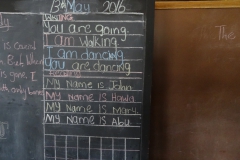 13th May 2016
You are going
I am walking
I am dancing
You are dancing
My Name is John
My Name is Hawa
My Name is Mary
My Name is Abu
is
is gone I
The